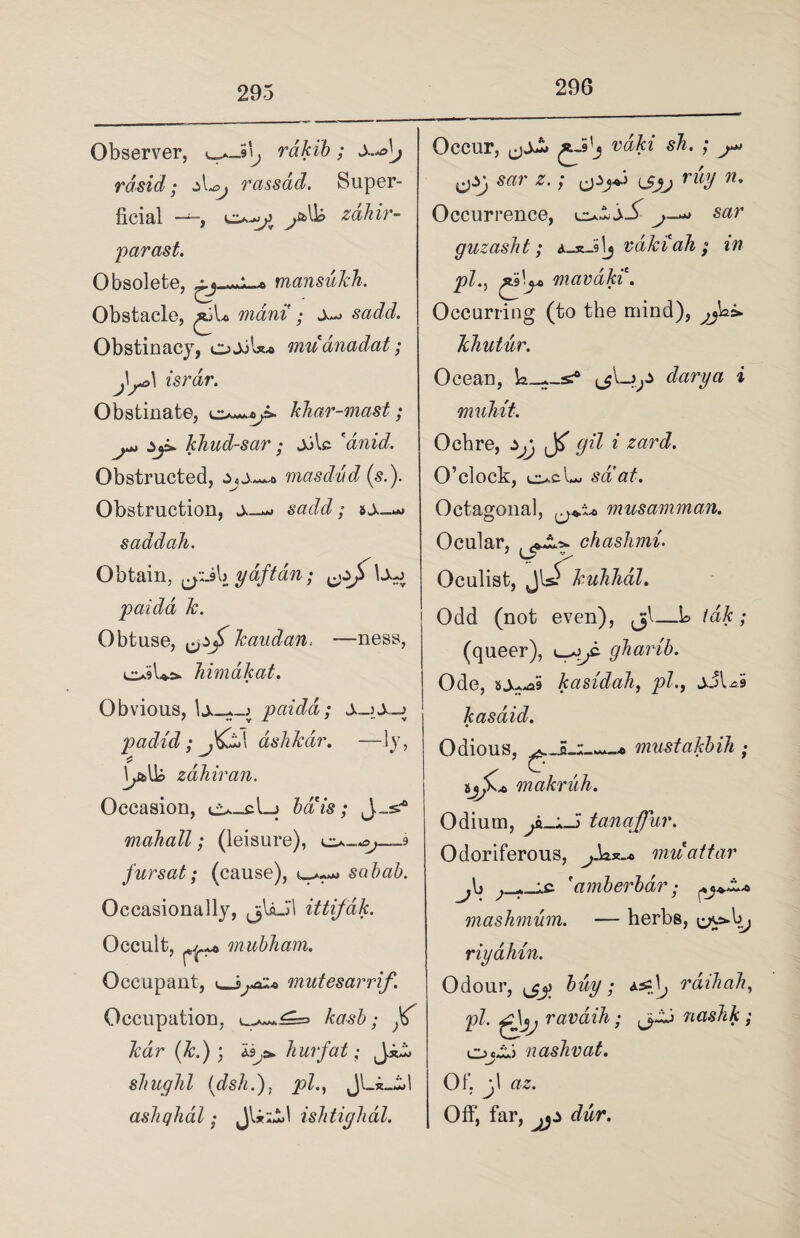 295
Observer, راقب rákib ; راصد
rásid ; رصاد rassád. Super-
ficial —, ظاهر پرست záhir-
parast.
Obsolete, منسوخ mansúkh.
Obstacle, مانع máni' ; سد sadd.
Obstinacy, معاندت mu'ánadat ;
اصرار isrár.
Obstinate, خرمست khar-mast ;
خود سر khud-sar ; عاند 'ánid.
Obstructed, مسدود masdúd (s.).
Obstruction, سد sadd ; سده
saddah.
Obtain, یافتن yáftán ; پیدا کردن
paidá k.
Obtuse, کودن kaudan. —ness,
حماقت himákat.
Obvious, پیدا paidá ; پدید
padíd ; آشکار áshkár. —ly,
ظاهراً záhiran.
Occasion, باعث bá'is ; محل
mahall ; (leisure), فرصت
fursat ; (cause), سبب sabab.
Occasionally, اتفاق ittifák.
Occult, مبهم mubham.
Occupant, متصرف mutesarrif.
Occupation, کسب kasb ; کار
kár (k.) ; حرفة hurfat ; شغل
shughl (dsh.), pl., اشغال
ashghál ; اشتغال ishtighál.
296
Occur, واقع شدن váki sh. ; سر
زدن sar z. ; روی نمودن rúy n.
Occurrence, سر گذشت sar
guzasht ; واقعه váki'ah ; in
pl., مواقع maváki'.
Occurring (to the mind), خطور
khutúr.
Ocean, دریای محیط darya i
muhít.
Ochre, گل زرد gil i zard.
O'clock, ساعت sá'at.
Octagonal, مثمن musamman.
Ocular, چشمی chashmi.
Oculist, کحال kuhhál.
Odd (not even), طاق ták ;
(queer), غریب gharíb.
Ode, قصیده kasídah, pl., قصائد
kasáid.
Odious, مستقبح mustakbih ;
مکروه makrúh.
Odium, تنفر tanaffur.
Odoriferous, معطر mu'attar
عنبر بار 'amberbár ; مشموم
mashmúm. — herbs, ریاحین
riyáhín.
Odour, بوی búy ; رایحه ráihah,
pl. روایح raváih ; نشق nashk ;
نشوت nashvat.
Of, از az.
Off, far, دور dúr.